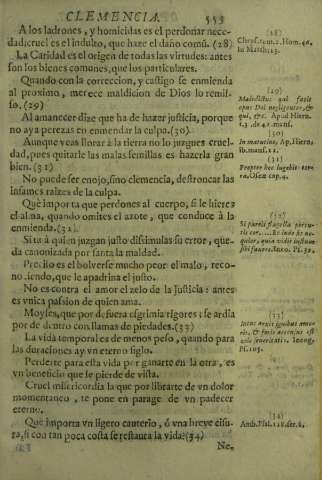 CLEMENCIA. 553
A los ladrones, y homicidas es el perdonar nece-
dad: cruel es el indulto, que haze el daño comũ. (28)
La Caridad es el origen de todas las virtudes: antes
son los bienes comunes, que los particulares.
Quando con la correccion, y castigo se enmienda
al proximo, merece maldicion de Dios lo remis-
so. (29)
Al amanecer dize que ha de hazer justicia, porque
no aya perezas en enmendar la culpa. (30)
Aunque veas llorar à la tierra no lo juzgues cruel-
dad, pues quitarle las malas semillas es hazerla gran
bien. (31)
No puede ser enojo, sino clemencia, destroncar las
infames raizes de la culpa.
Què importa que perdones al cuerpo, si le hieres
el alma, quando omites el azote, que conduce à la
enmienda. (31)
Si tu à quien juzgan justo dissimulas su error, que-
da canonizada por santa la maldad.
Precisso es el bolverse mucho peor el malo, reco-
nociendo, que le apadrina el justo.
No es contra el amor el zelo de la Justicia: antes
es vnica passion de quien ama.
Moyses, que por de fuera esgrimia rigores; se ardia
por de dentro con llamas de piedades. (33)
La vida temporal es de menos peso, quando para
las duraciones ay vn eterno siglo.
Perderte para esta vida por ganarte en la otra, es
vn beneficio que se pierde de vista.
Cruel misericordia la que por librarte de vn dolor
momentaneo, te pone en parage de vn padecer
eterno.
Què importa vn ligero cauterio, ò vna breve cisu-
ra, si con tan poca costa se restaura la vida? (34)
Ne-
(28)
(29)
Maledictus qui facit
opus Dei negligenter,
(30)
In matutino,
(31)
Propter hoc lugebit ter-
ra, Osea cap. 4.
(32)
(33)
Ps. 105.
(34)
Amb. Psal. 118. ser. 8.